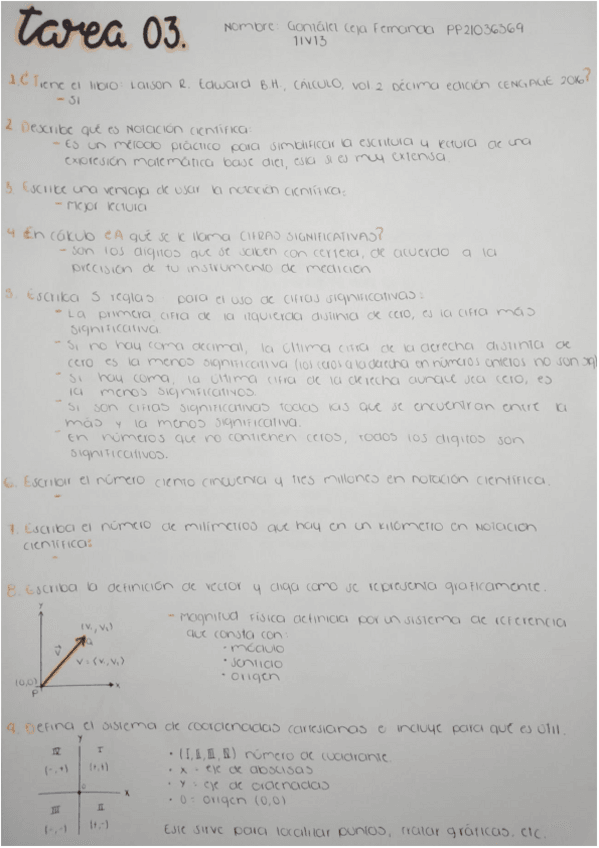 tarea 03.
Nombre: González Ceja Fernanda PP21036369
1IV13
1. ¿Tiene el libro: Larson R. Edward B.H., CÁLCULO, vol 2 Décima edición CENGAGE 2016?
- Si
2. Describe qué es Notación científica:
- Es un método práctico para simplificar la escritura y lectura de una
expresión matemática base diez, esta si es muy extensa.
3. Escribe una ventaja de usar la notación científica:
- Mejor lectura
4. En cálculo ¿A qué se le llama CIFRAS SIGNIFICATIVAS?
- Son los dígitos que se saben con certeza, de acuerdo a la
precisión de tu instrumento de medición
5. Escriba 5 reglas para el uso de cifras significativas:
- La primera cifra de la izquierda distinta de cero, es la cifra más
significativa.
- Si no hay coma decimal, la última cifra de la derecha distinta de
cero es la menos significativa (los ceros a la derecha en números enteros no son
- Si hay coma, la última cifra de la derecha aunque sea cero, es
la menos significativos.
- Si son cifras significativas todas las que se encuentran entre la
más y la menos significativa.
- En números que no contienen ceros, todos los dígitos son
significativos.
6. Escribir el número ciento cincuenta y tres millones en notación científica.
-
7. Escriba el número de milímetros que hay en un kilómetro en Notación
científica:
-
8. Escriba la definición de vector y diga como se representa gráficamente.
- Magnitud física definida por un sistema de referencia
que consta con:
• módulo
• sentido
• origen
y
Q
V
(0,0)
P
x
9. Defina el sistema de coordenadas cartesianas e incluye para qué es útil.
• (I, II, III, IV) número de cuadrante.
• x - eje de abscisas
• y - eje de ordenadas
• 0 - origen (0,0)
Este sirve para localizar puntos, trazar gráficas, etc.
y
I
(-,+) (+,+)
0
x
III II
(-,-) (+,-)